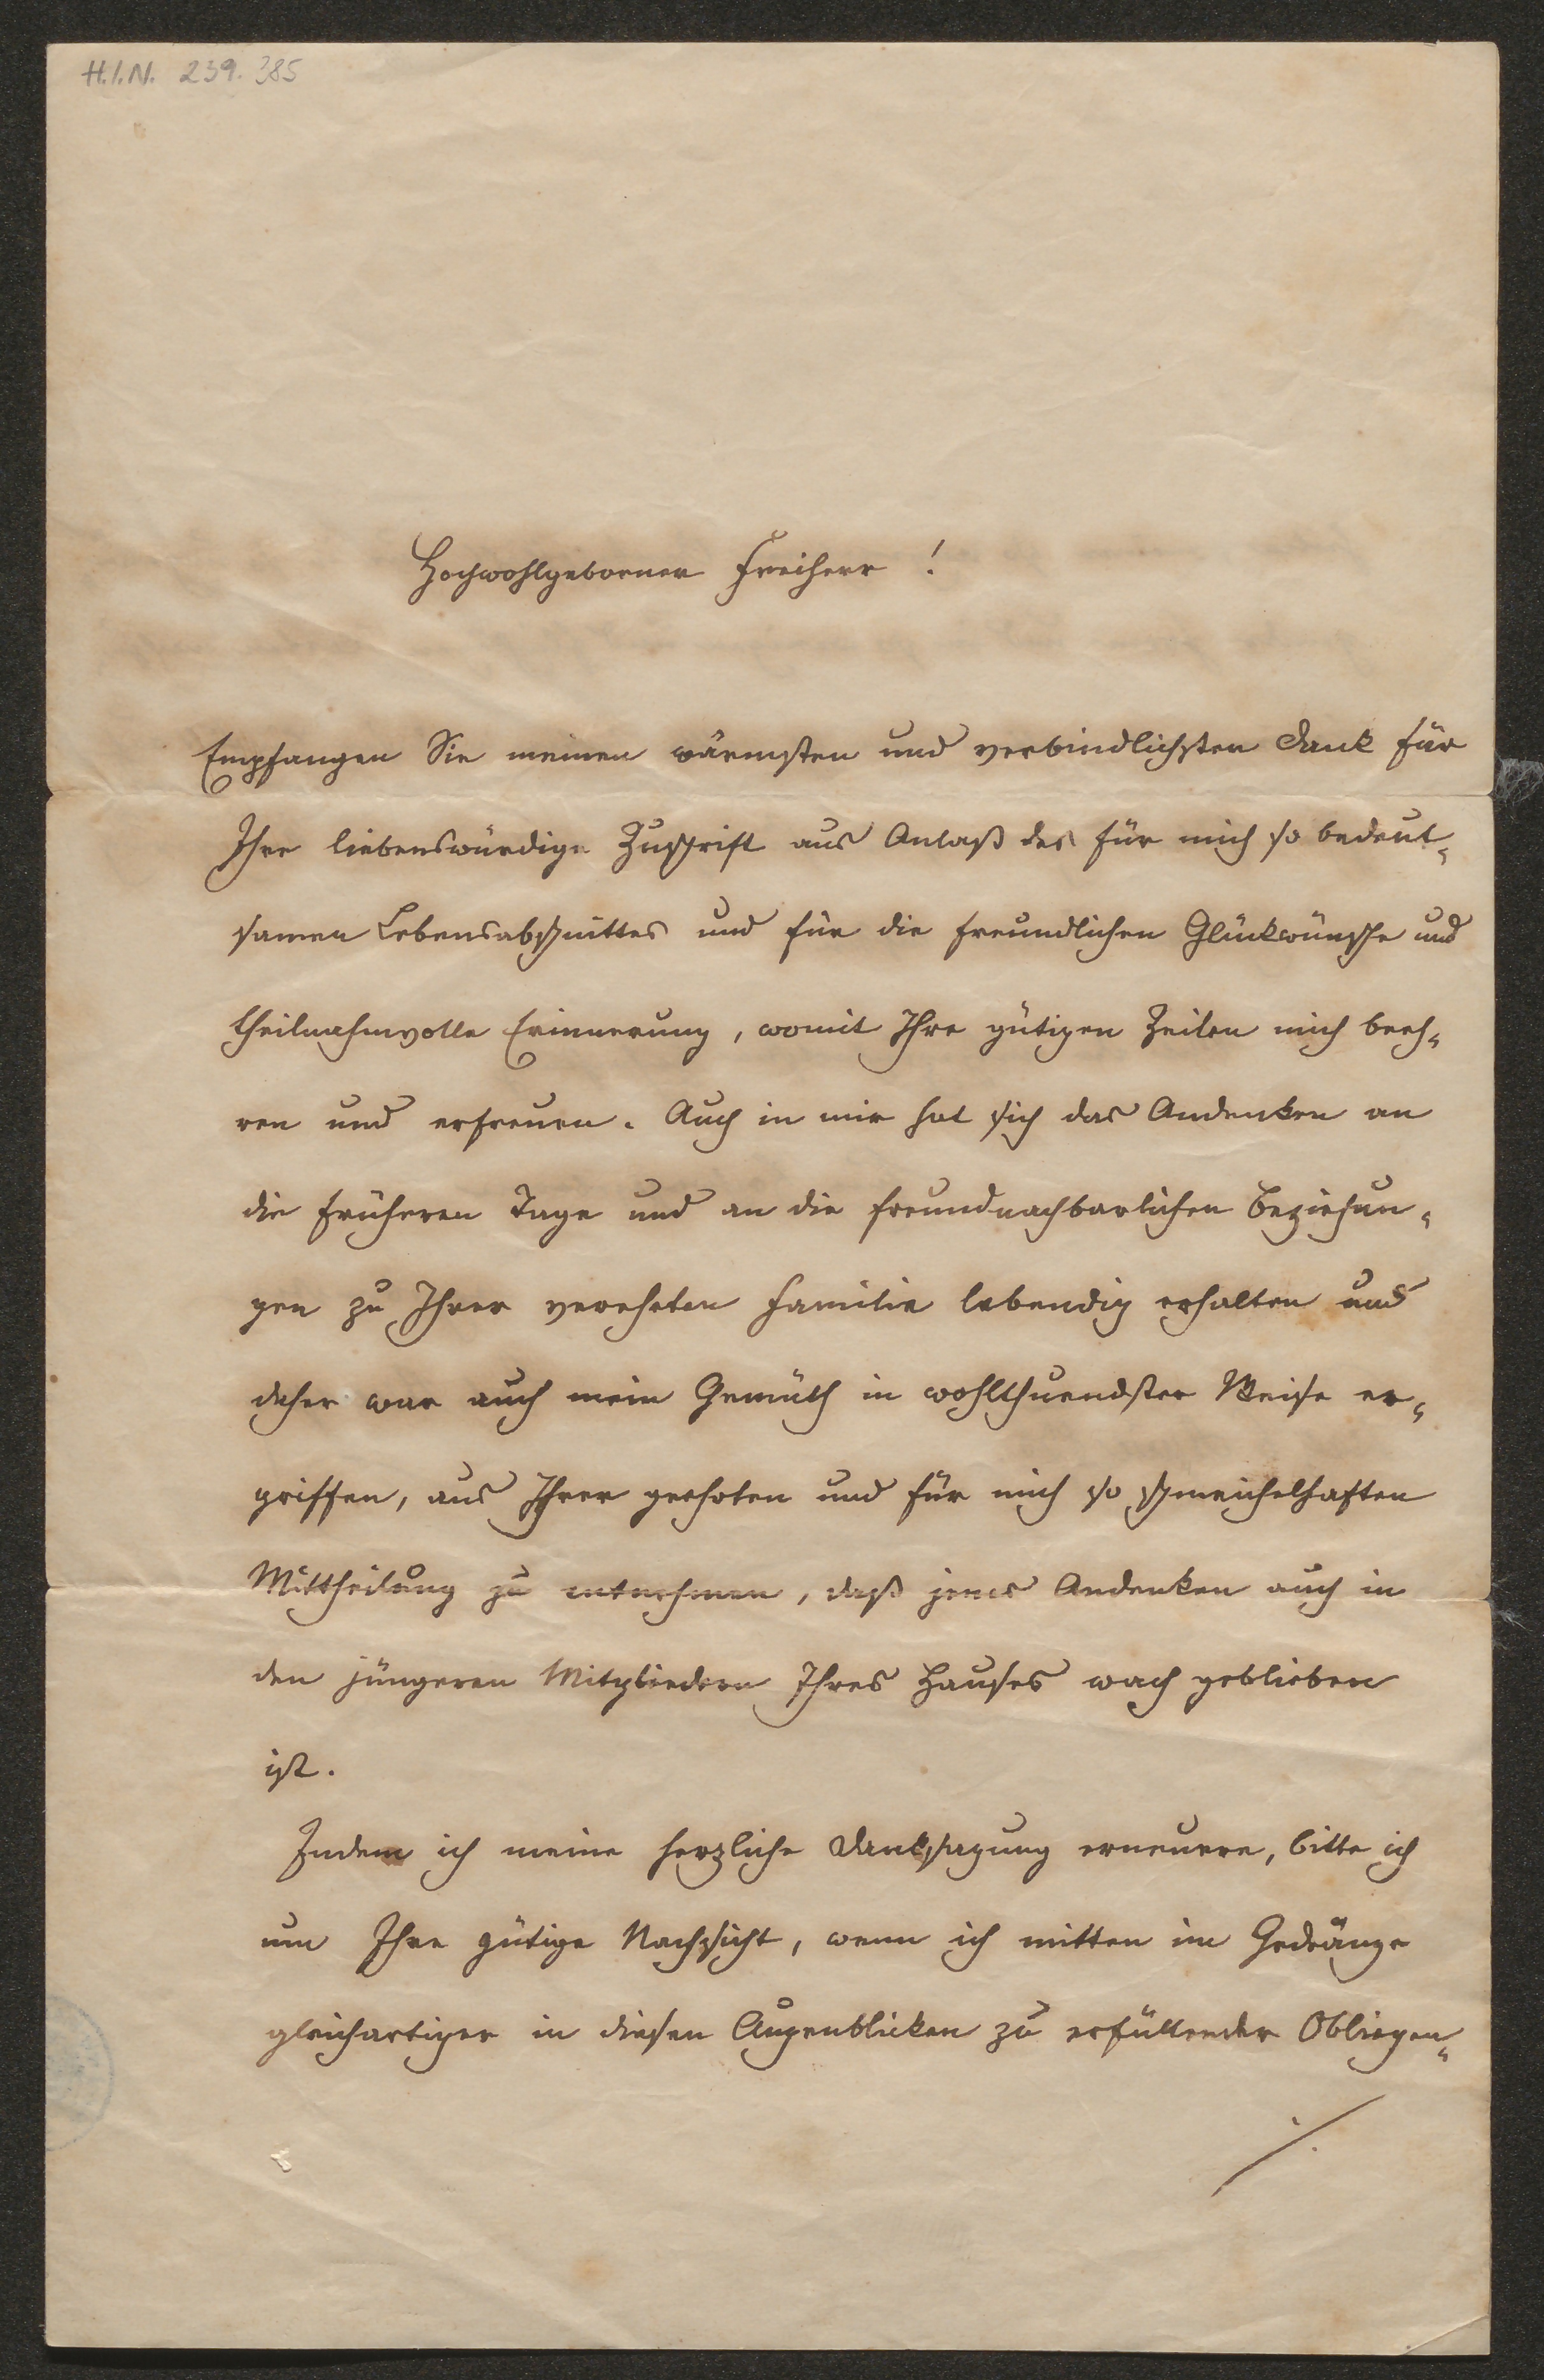 H.I.N. 239.385
Hochwohlgeborner Freiherr!
Empfangen Sie meinen wärmsten und verbindlichsten Dank für
Ihre liebenswürdige Zuschrift aus Anlaß des für mich so bedeut-
samen Lebensabschnittes und für die freundlichen Glückwünsche und
theilnahmvolle Erinnerung, womit Ihre gütigen Zeilen mich beeh-
ren und erfreuen. Auch in mir hat sich das Andenken an
die früheren Tage und an die freundnachbarlichen Beziehun-
gen zu Ihrer verehrten Familie lebendig erhalten und
daher war auch mein Gemüth in wohlthuendster Weise er-
griffen, aus Ihrer geehrten und für mich so schmeichelhaften
Mittheilung zu entnehmen, daß jenes Andenken auch in
den jüngeren Mitgliedern Ihres Hauses wach geblieben
ist.
Indem ich meine herzliche Danksagung erneuere, bitte ich
um Ihre gütige Nachsicht, wenn ich mitten im Gedränge
gleichartiger in diesen Augenblicken zu erfüllender Obliegen-
./.